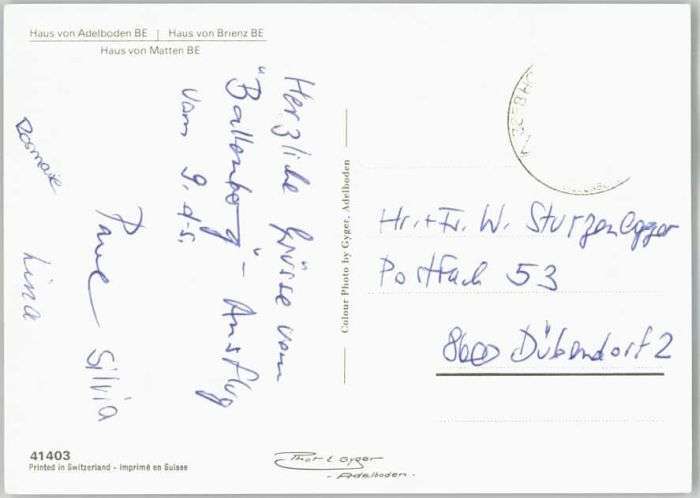 Haus von Adelboden BE | Haus von Brienz BE
Haus von Matten BE
Herzliche Grüsse vom
"Ballenberg"- Ausflug
vom 9. d.s.
Rosmarie
Paul
Silvia
Lina
Colour Photo by Gyger, Adelboden
Hr. + Fr. W. Sturzenegger
Postfach 53
8600 Dübendorf 2
41403
Printed in Switzerland - Imprimé en Suisse
Phot E. Gyger
- Adelboden -